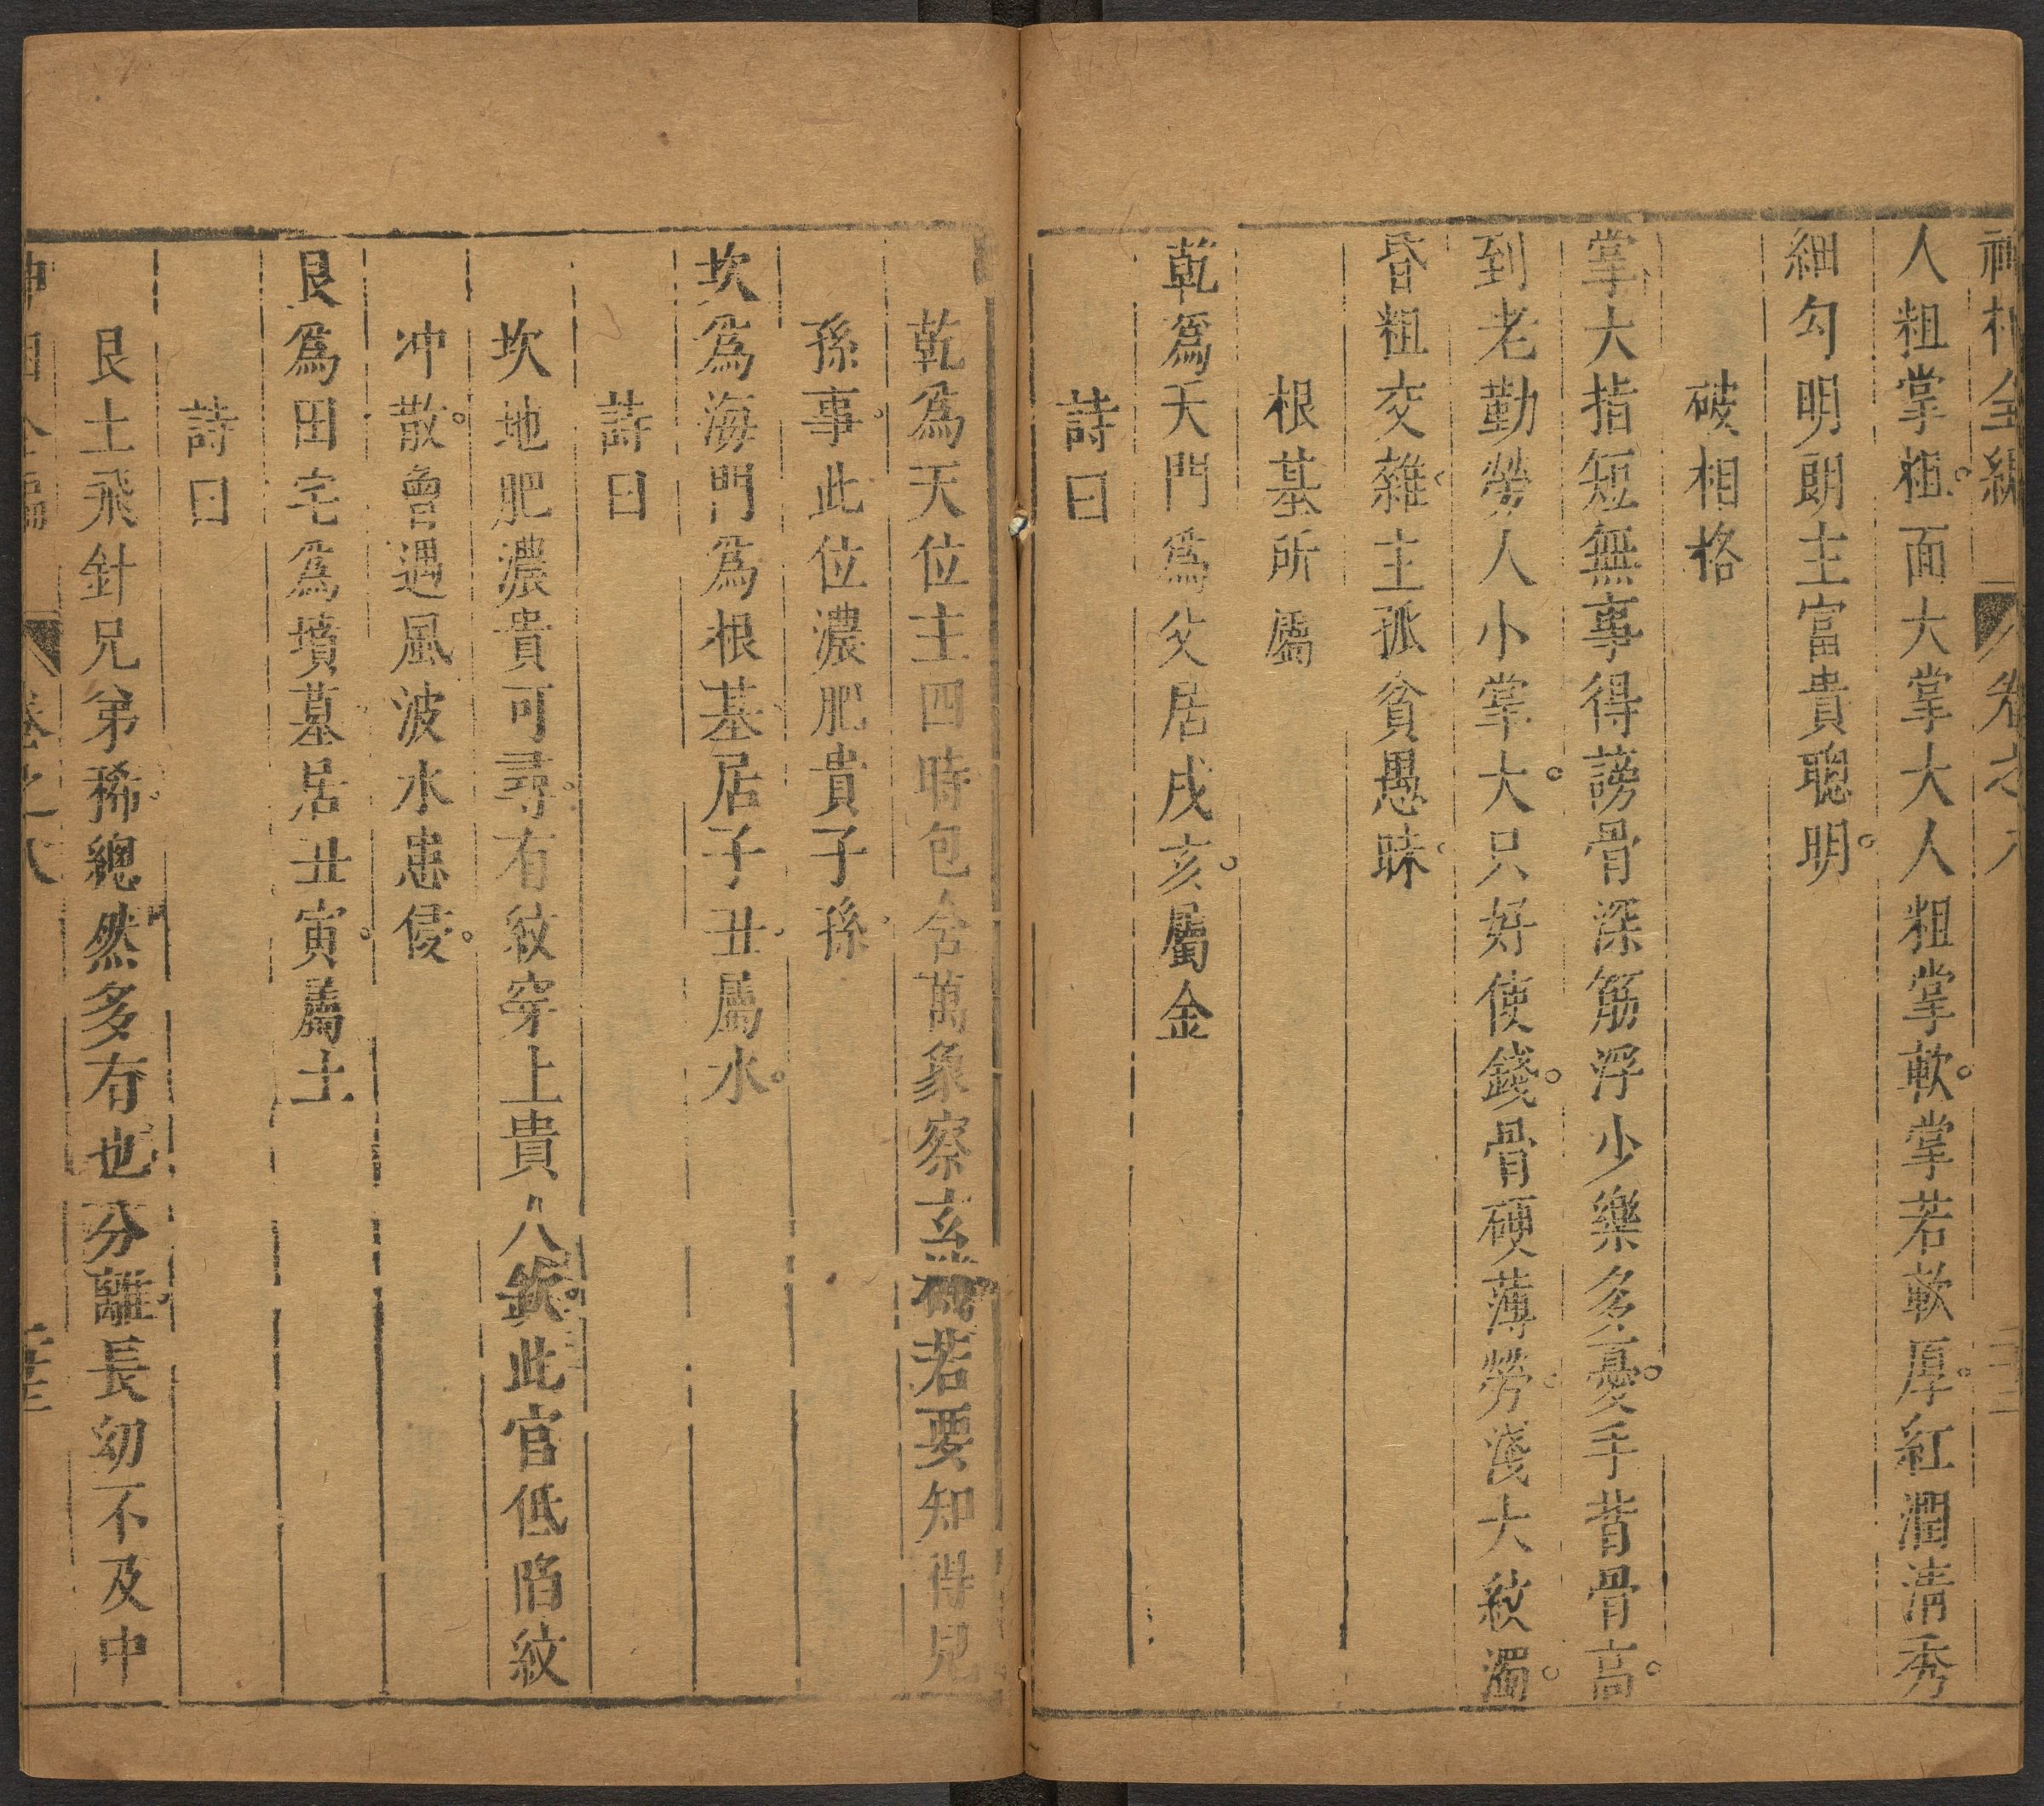 神相全編 卷之八
人粗掌粗面大掌大人粗掌軟掌若軟厚紅潤清秀
細勾明朗主富貴聰明
破相格
掌大指短無事得謗骨深筋浮少樂多憂手背骨高
到老勤勞人小掌大只好使錢骨硬薄勞淺大紋濁
昏粗交雜主孤貧愚昧
根基所屬
乾爲天門爲父居戌亥屬金
詩曰
乾爲天位主四時包含萬象察玄若要知得兒
孫事此位濃肥貴子孫
坎爲海門爲根基居子丑屬水
詩曰
坎地肥濃貴可尋有紋穿上貴人欽此宮低陷紋
冲散會遇風波水患侵
艮爲田宅爲墳墓居丑寅屬土
詩曰
艮土飛針兄弟稀總然多有也分離長幼不及中
神相全編 卷之八